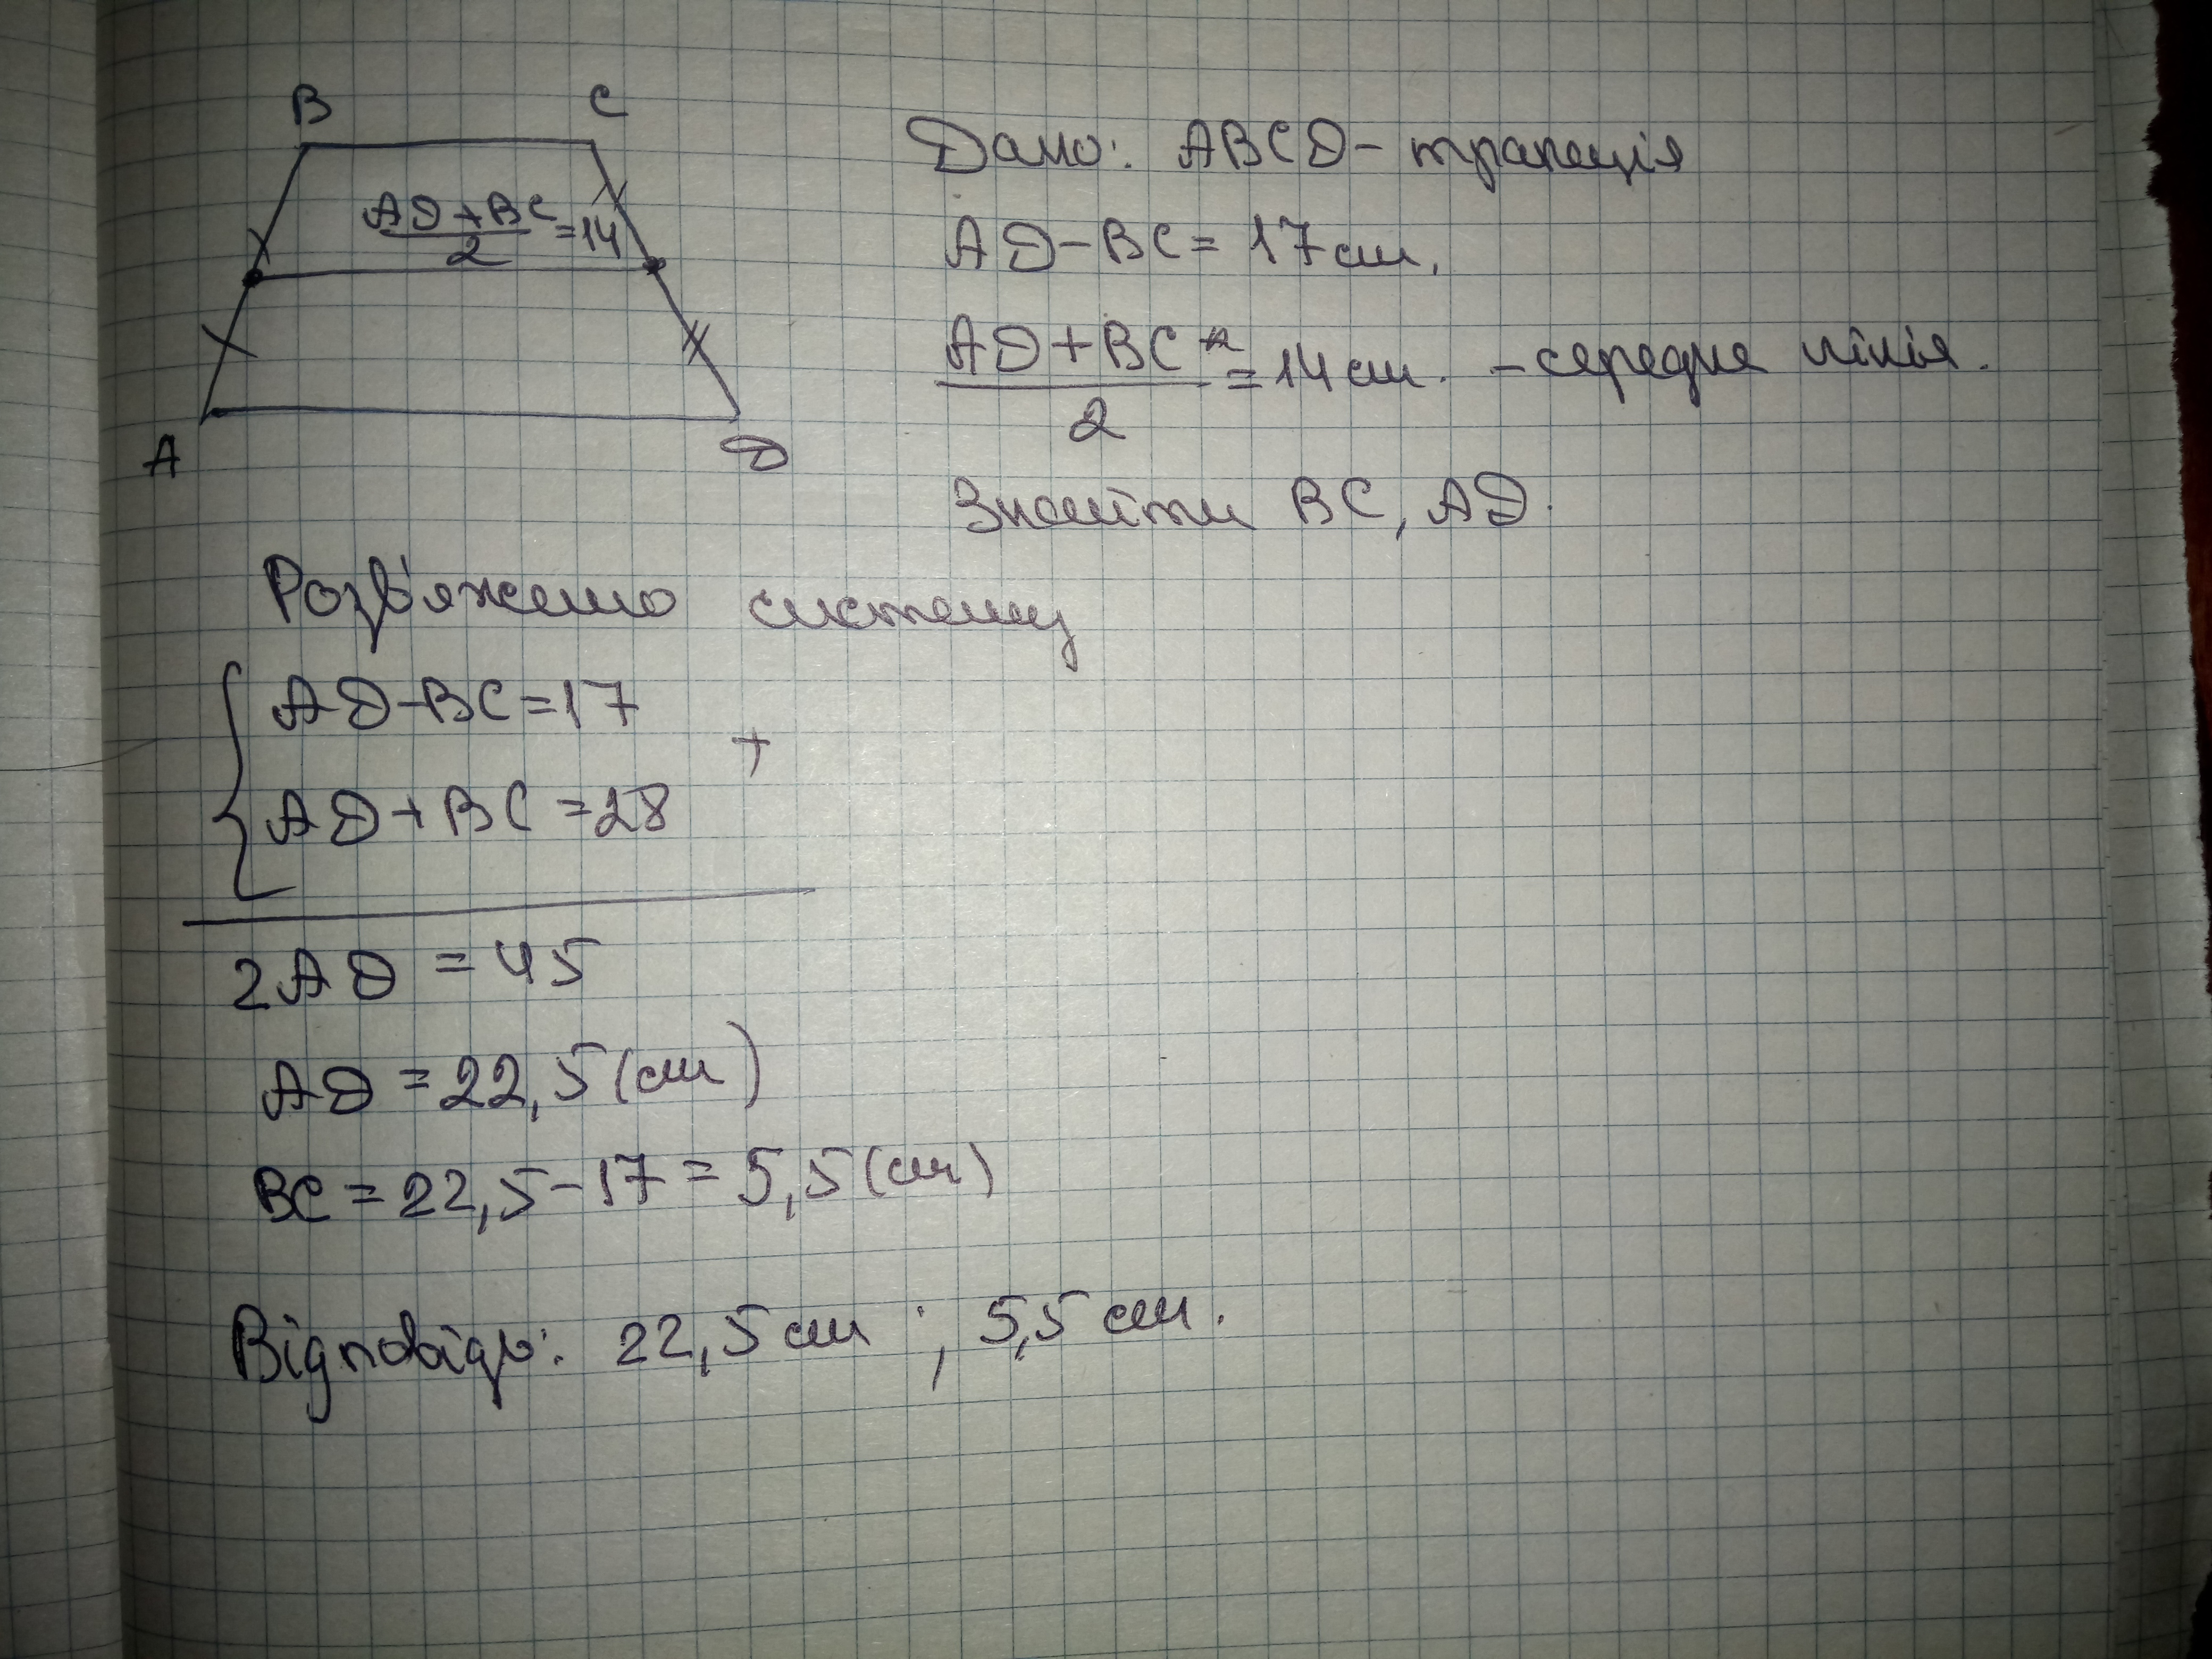 B C
AD+BC
2
=14
A D
Дано: ABCD - трапеція
AD-BC = 17 см.
AD+BC
2
= 14 см. - середня лінія.
Знайти BC, AD.
Розв'яжемо систему
AD-BC=17
+
AD+BC=28
2AD = 45
AD = 22,5 (см)
BC = 22,5-17 = 5,5 (см)
Відповідь: 22,5 см ; 5,5 см.